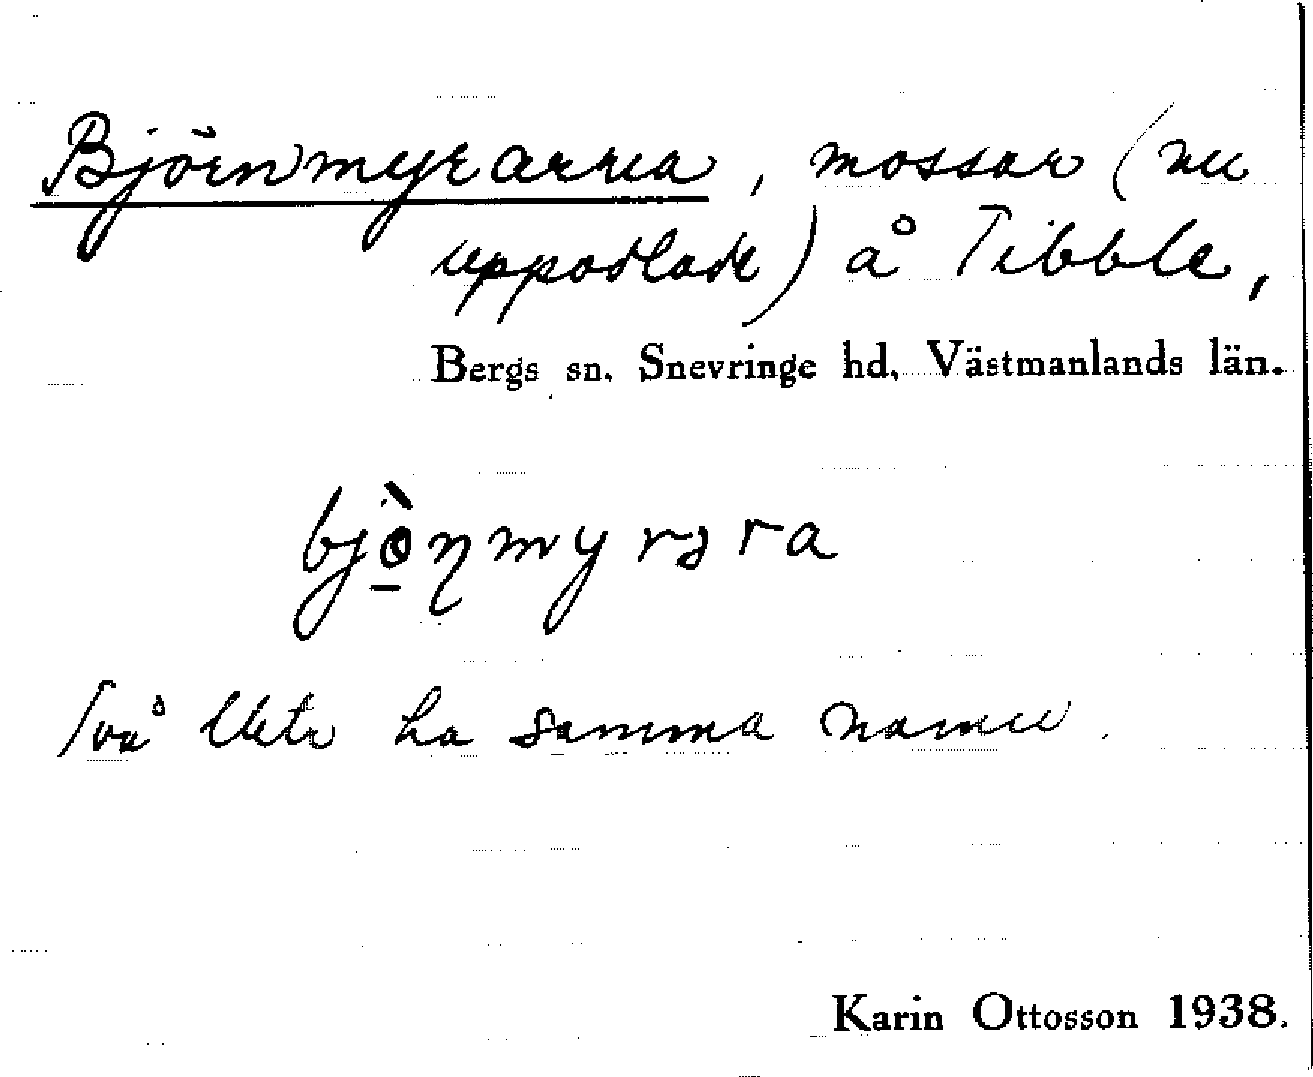 Björnmyrarna, mossar (nu
uppodlade) å Tibble,
Bergs sn. Snevringe hd, Västmanlands län.
bjò̱ŋmyrəra
Två ha samma namn.
Karin Ottosson 1938.